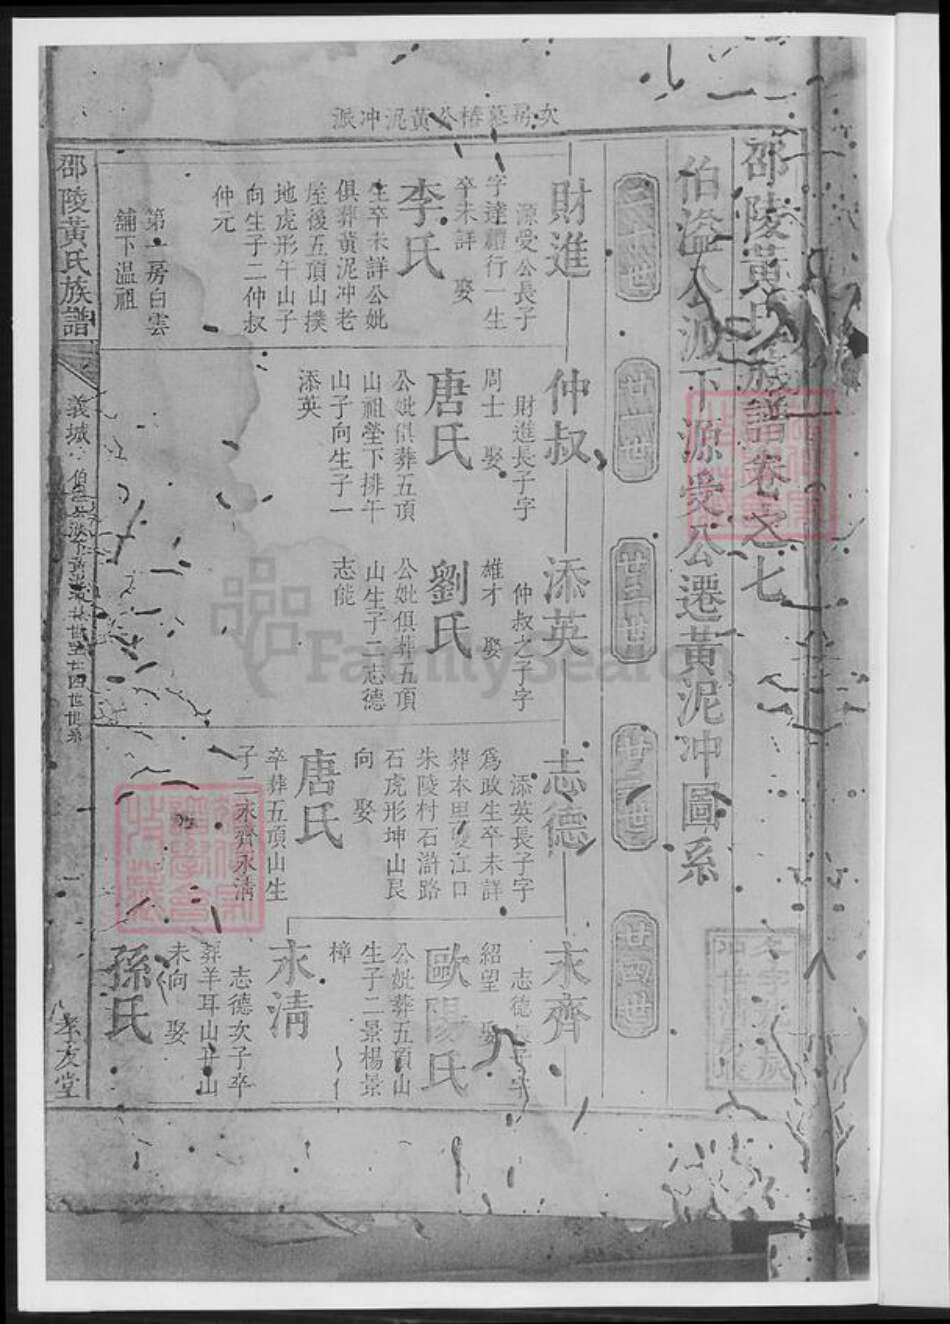 邵陵黃氏族譜卷之七
伯溢公派下源受公遷黃泥冲圖系
次房墓椿公黃泥冲派
二十世
廿一世
廿二世
廿三世
廿四世
財進
源受公長子
字達禮行一生
卒未詳 娶
李氏
生卒未詳公妣
俱葬黃泥冲老
屋後五頂山撲
地虎形午山子
向生子二仲叔
仲元
第一房白雲
舖下溫祖
仲叔
財進長子字
周士 娶
唐氏
公妣俱葬五頂
山祖塋下排午
山子向生子一
添英
添英
仲叔之子字
雄才 娶
劉氏
公妣俱葬五頂
山生子二志德
志能
志德
添英長子字
爲政生卒未詳
葬本里雙江口
朱陵村石滸路
石虎形坤山艮
向 娶
唐氏
卒葬五頂山生
子二永齊永清
永齊
志德長子字
紹望 娶
歐陽氏
公妣葬五頂山
生子二景楊景
樟
永清
志德次子卒
葬羊耳山丑山
未向 娶
孫氏
邵陵黃氏族譜
義城
孝友堂
FamilySearch